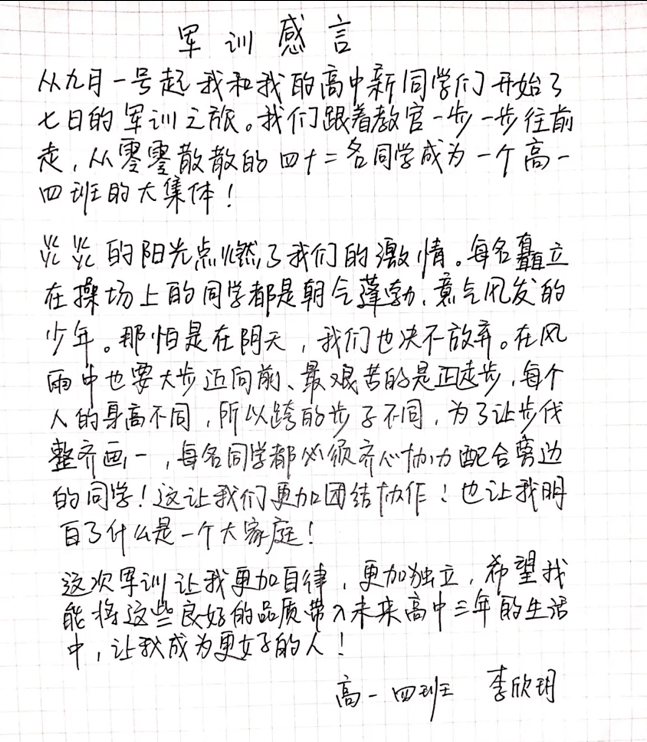 军训感言
从九月一号起我和我的高中新同学们开始了
七日的军训之旅。我们跟着教官一步一步往前
走，从零零散散的四十二名同学成为一个高一
四班的大集体！
炎炎的阳光点燃了我们的激情。每名矗立
在操场上的同学都是朝气蓬勃、意气风发的
少年。那怕是在阴天，我们也决不放弃。在风
雨中也要大步迈向前、最艰苦的是正走步，每个
人的身高不同，所以跨的步子不同，为了让步伐
整齐画一，每名同学都必须齐心协力配合旁边
的同学！这让我们更加团结协作！也让我明
白了什么是一个大家庭！
这次军训让我更加自律，更加独立，希望我
能将这些良好的品质带入未来高中三年的生活
中，让我成为更好的人！
高一四班 李欣玥